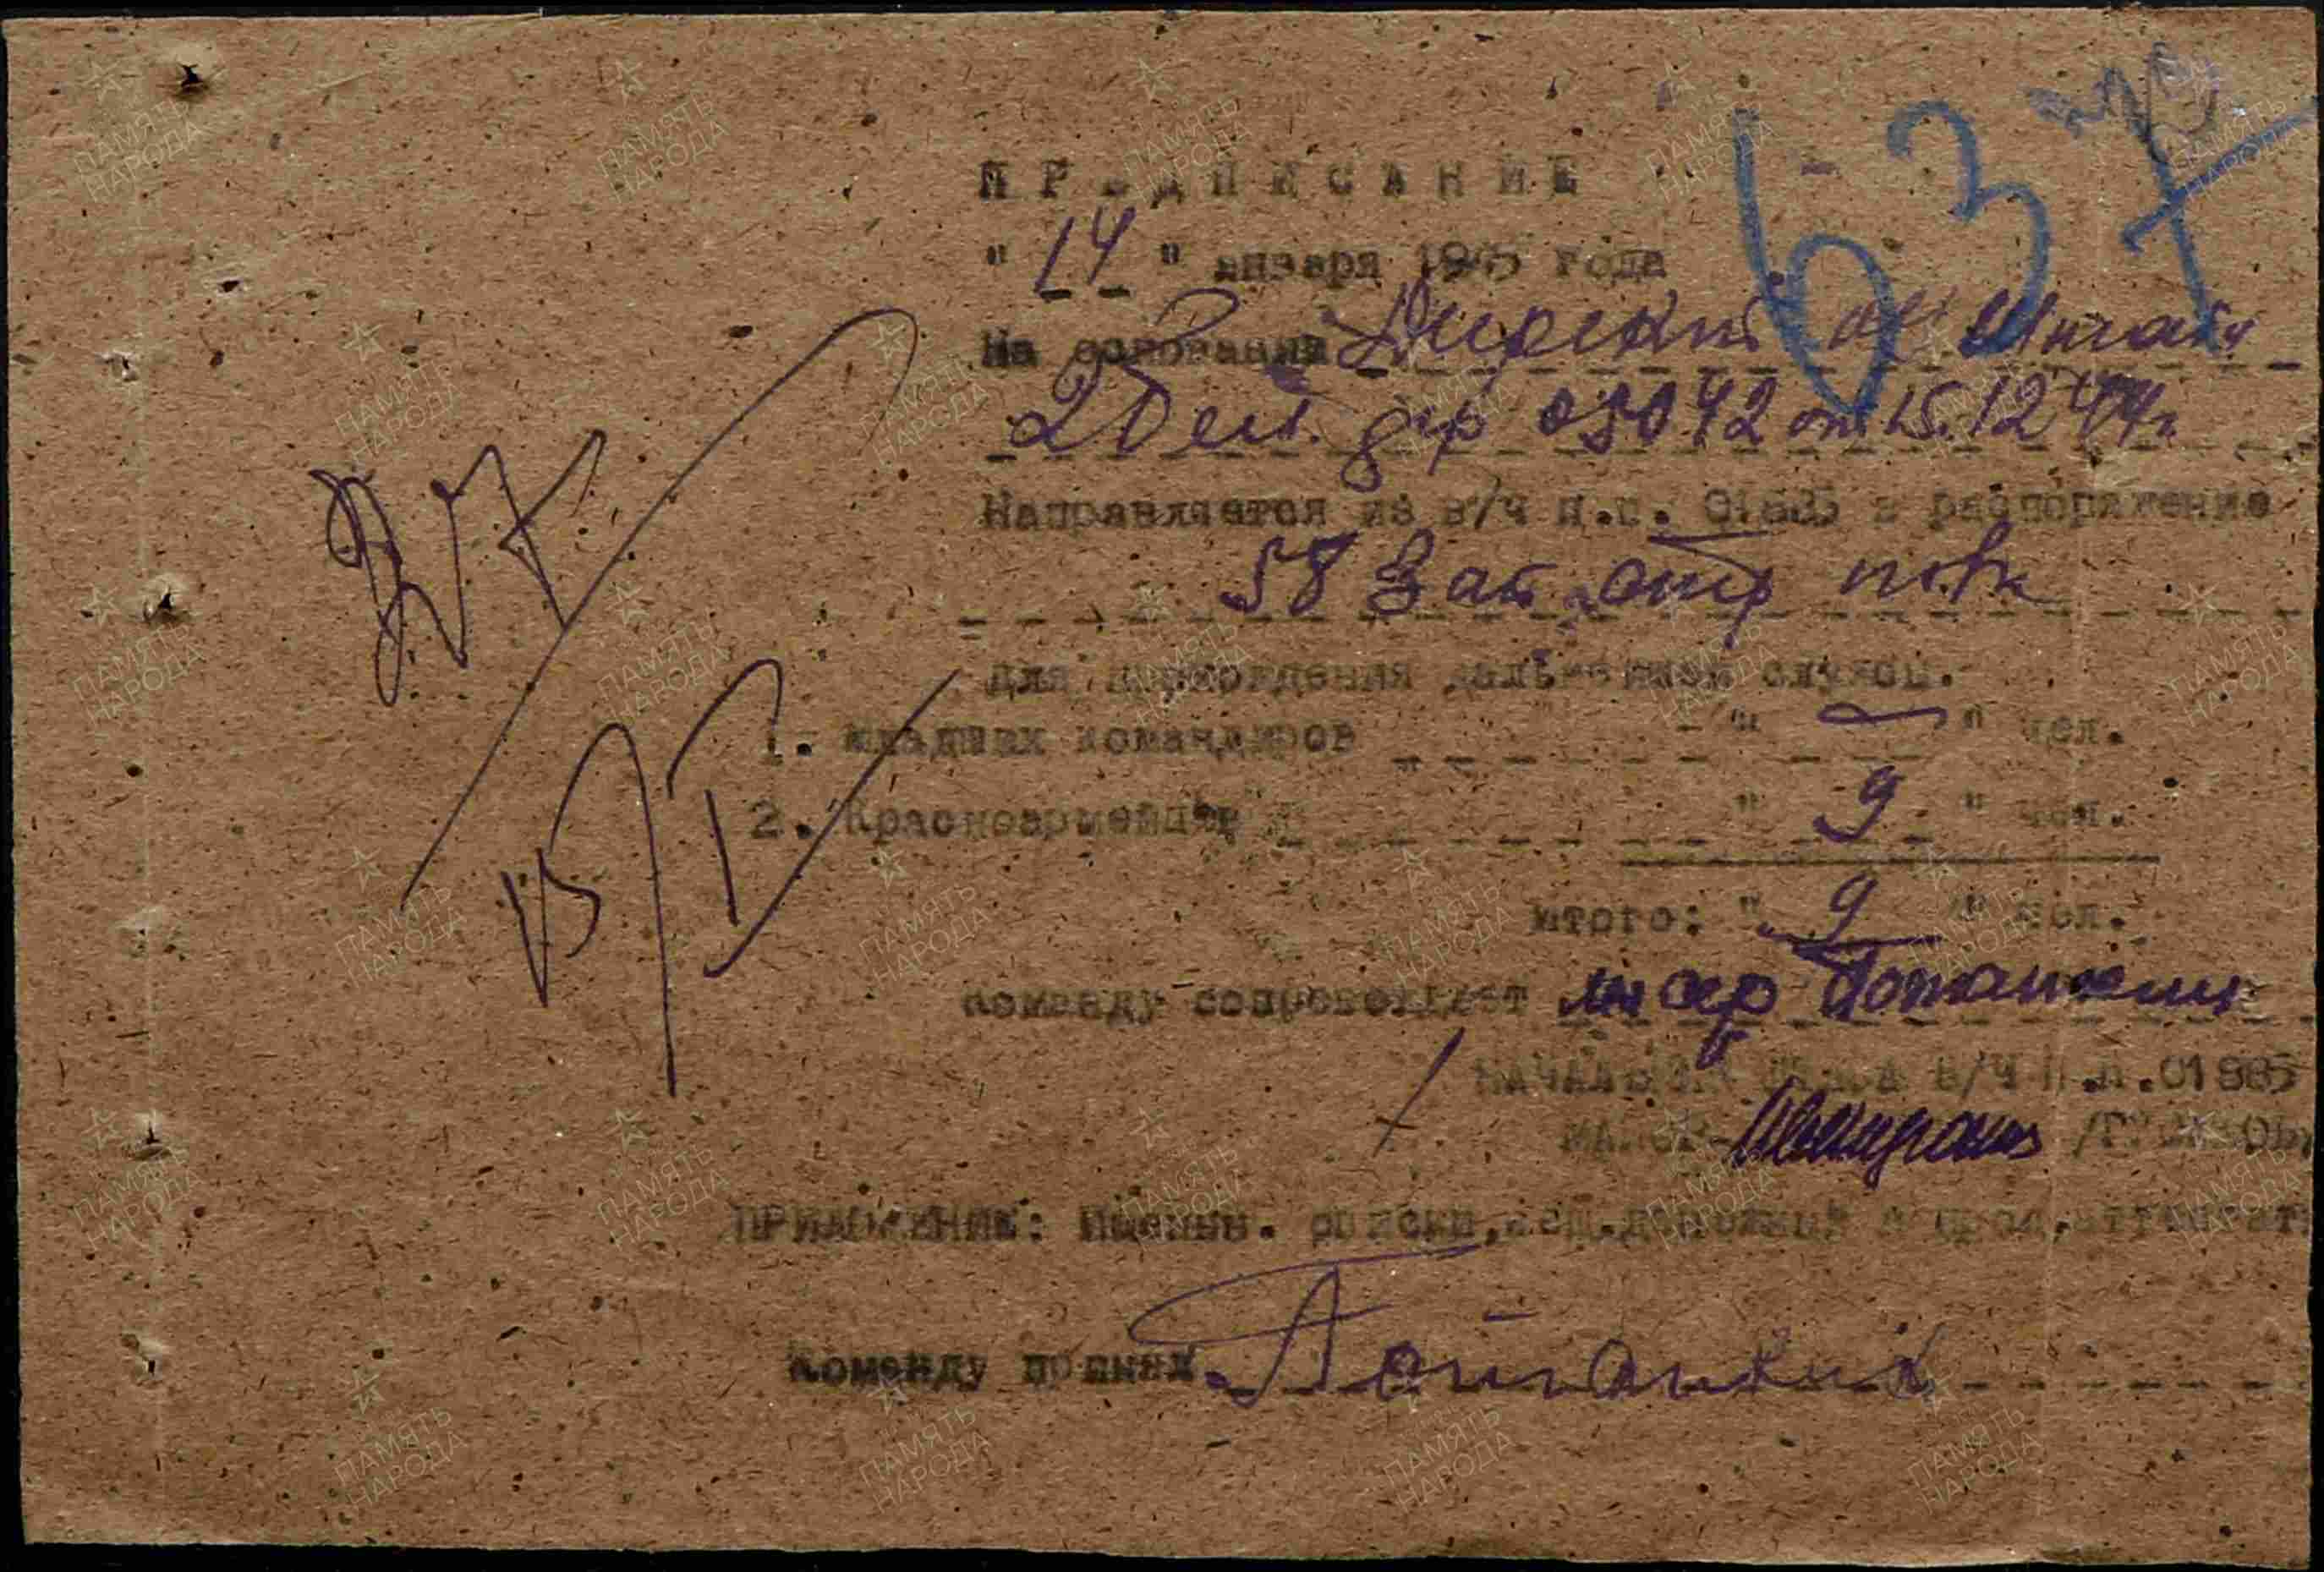 637
ПРЕДПИСАНИЕ
" 14 " января 1945 года
На основании Директ Штаба
2 Бел. фр 05042 от 15.12 44г.
Направляется из в/ч п.п. 01885 в распоряжение
58 Зап. стр полк
для прохождения дальнейшей службы.
1. младших командиров - " — " чел.
2. Красноармейцев " 9 " чел.
Итого: " 9 " чел.
Команду сопровождает мл сер Потапкин
НАЧАЛЬНИК ШТАБА В/Ч П.П.01885
МАЙОР
ПРИЛОЖЕНИЕ: Именн. списки, и прод.аттестат
Команду принял Потапкин